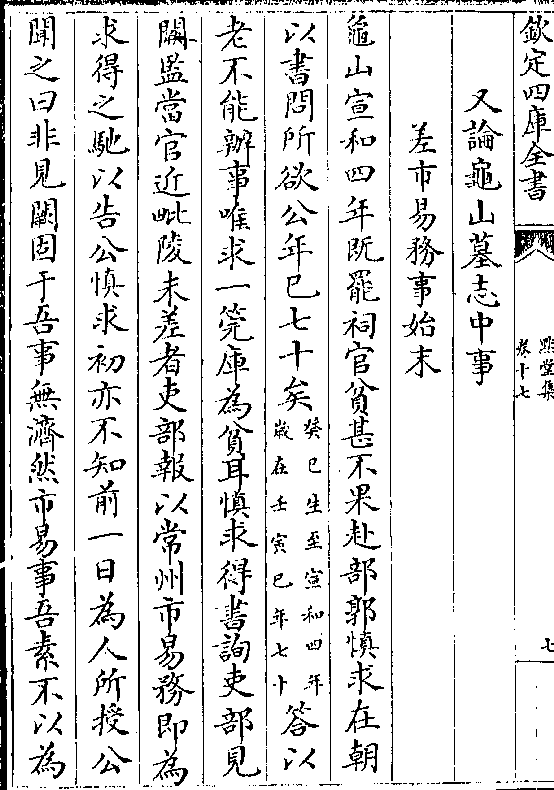 欽定四庫全書
默堂集
卷十七
七
又論龜山墓志中事
差市易務事始末
龜山宣和四年既罷祠官貧甚不果赴部郭慎求在朝
以書問所欲公年已七十矣癸巳生至宣和四年歲在壬寅已年七十答以
老不能辦事唯求一筦庫為貧耳慎求得書詢吏部見
闕監當官近毗陵未差者吏部報以常州市易務即為
求得之馳以告公慎求初亦不知前一日為人所授公
聞之曰非見闕固于吾事無濟然市易事吾素不以為